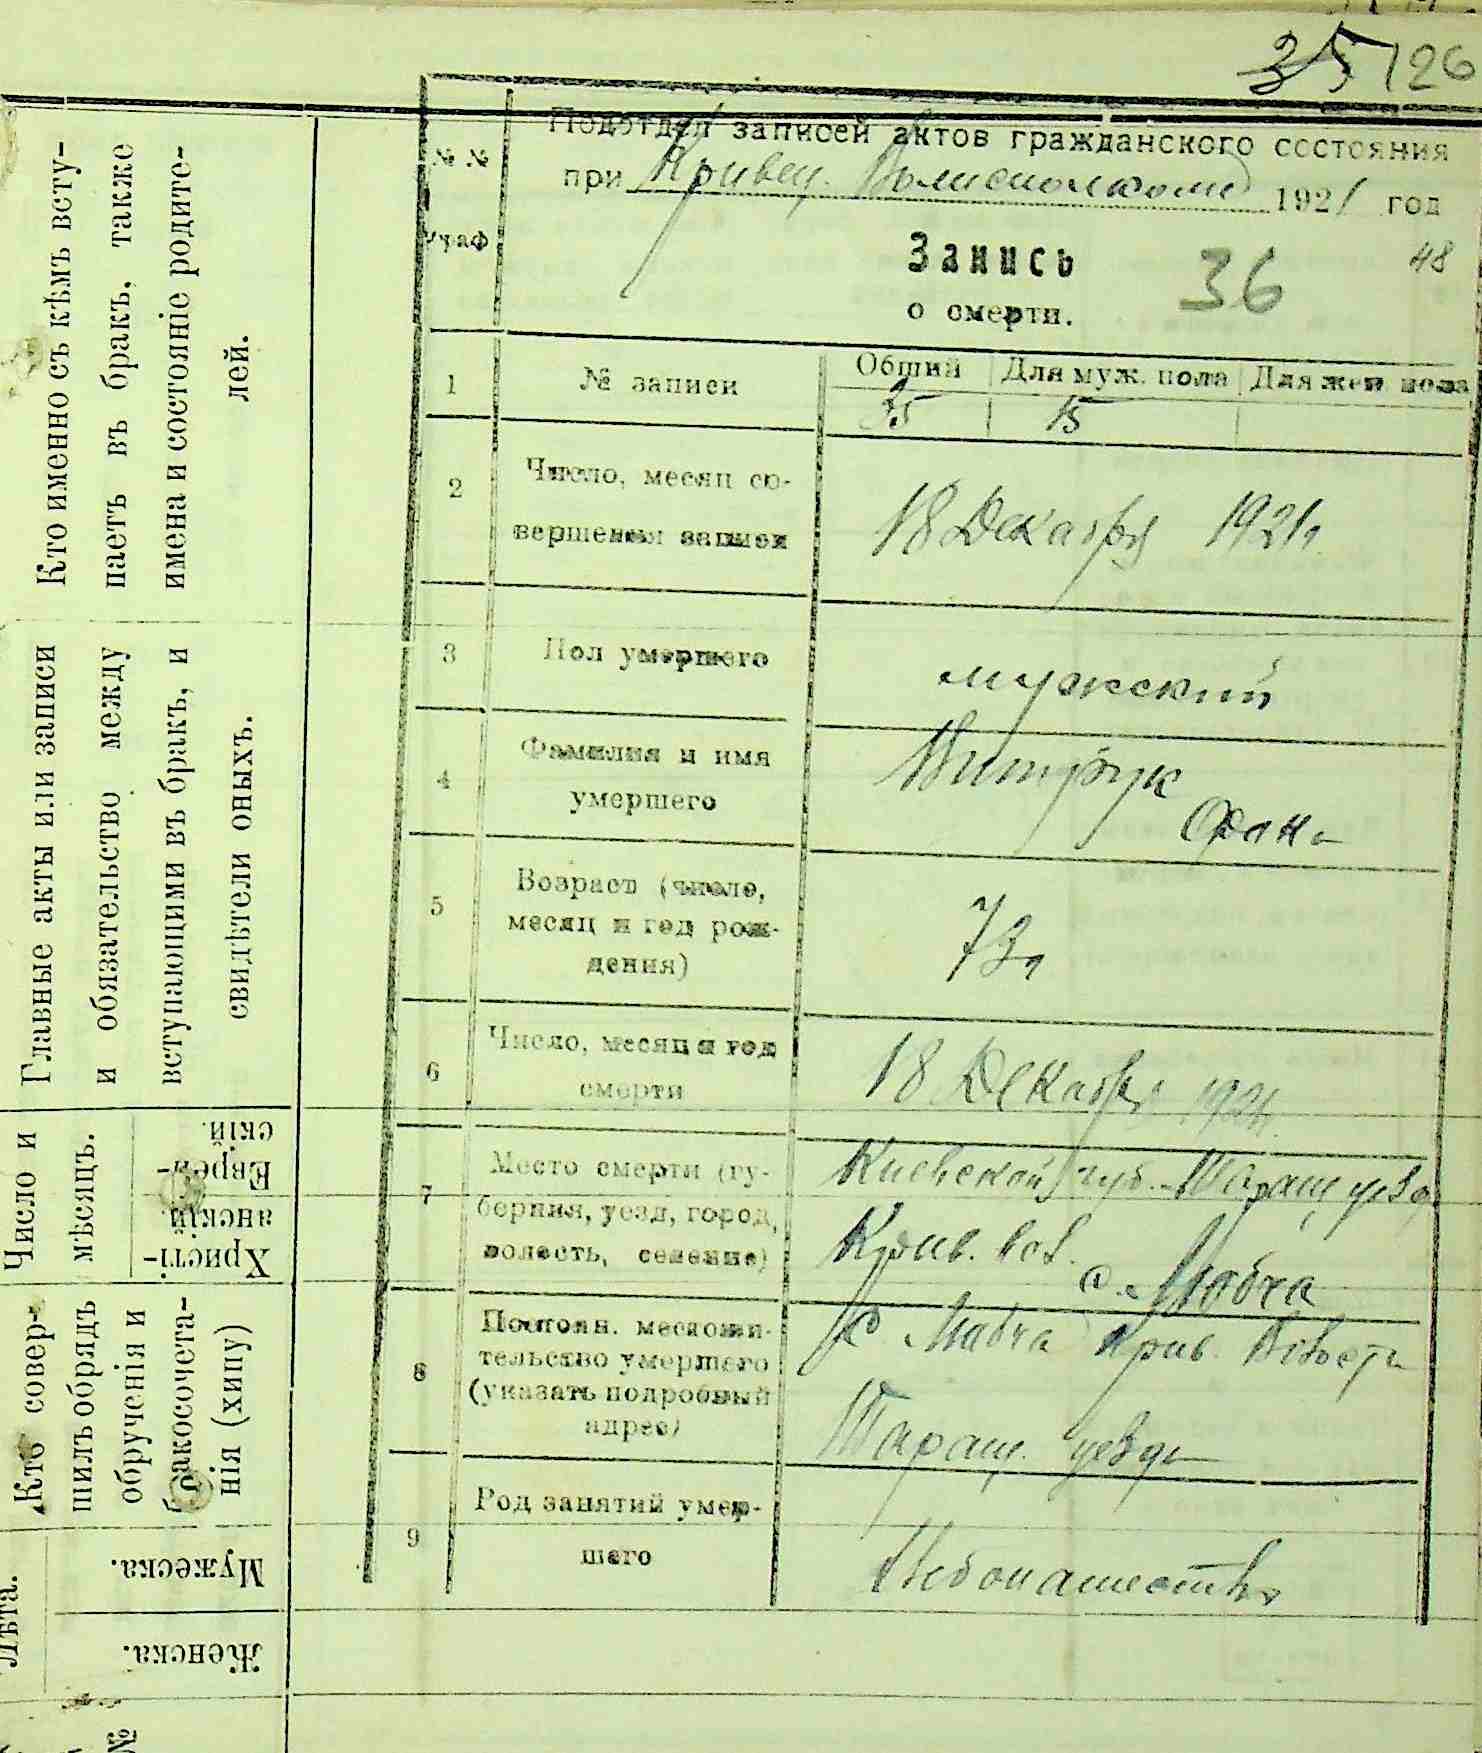 35 126
Подотдел записей актов гражданского состояния
при Кривец. Волисполкоме 1921 год
№ №
граф
Запись 36 48
о смерти.
1 № записи Общий Для муж. пола Для жен. пола
35 15
2 Число, месяц со-
вершения записи
18 Декабря 1921г.
3 Пол умершего мужский
4 Фамилия и имя
умершего
Витрук
5 Возраст (число,
месяц и год рож-
дения)
73
6 Число, месяц и год
смерти
18 Декабря 1921
7 Место смерти (гу-
берния, уезд, город,
волость, селение)
Киевской губ. Таращ уезда
Крив. вол.
с.
8 Постоян. месхожи-
тельство умершего
(указать подробный
адрес)
с Крив. Волости
Таращ. уезда
9 Род занятий умер-
шего
Хлебопашество
Кто именно съ кѣмъ всту-
паетъ въ бракъ, также
имена и состояніе родите-
лей.
Главные акты или записи
и обязательство между
вступающими въ бракъ, и
свидѣтели оныхъ.
Число и
мѣсяцъ.
Еврей-
скій.
Христі-
анскій.
Кто совер-
шилъ обрядъ
обрученія и
бракосочета-
нія (хипу)
Лѣта.
Мужеска.
Женска.
№